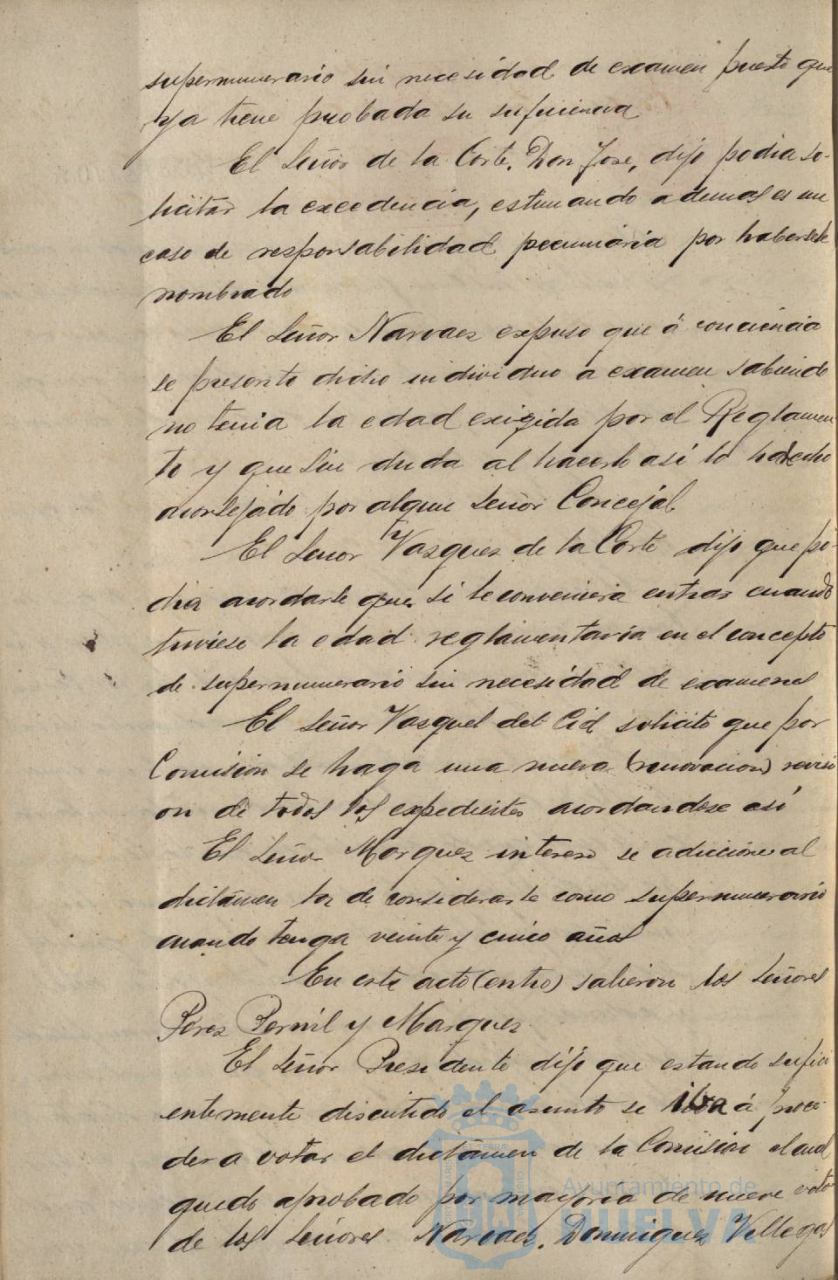 supernumerario sin necesidad de examen puesto que
ya tiene probada su suficiencia
El Señor de la Corte, Don Jose, dijo podia so-
licitar la excedencia, estimando ademas es un
caso de responsabilidad pecuniaria por habersele
nombrado
El Señor Narvaez expuso que á conciencia
se presento dicho individuo a examen sabiendo
no tenia la edad exigida por el Reglamen
to y que sin duda al hacerlo así lo ha hecho
aconsejado por algun Señor Concejal
El Señor Vazquez de la Corte dijo que po-
dia acordarse que si le conveniera entrar cuando
tuviese la edad reglamentaria en el concepto
de supernumerario sin necesidad de examenes
El Señor Vasquez del Cid solicito que por
Comision se haga una nueva (renovacion) revisi
on de todos los expedientes acordandose así
El Señor Marquez intereso se adicione al
dictámen la de considerarle como supernumerario
cuando tenga veinte y cinco años
En este acto (entro) salieron los Señores
Perez Pernil y Marquez
El Señor Presidente dijo que estando sufici
entemente discutido el asunto se iba á proce-
der a votar el dictámen de la Comision el cual
quedo aprobado por mayoria de nueve votos
de los Señores Narvaez, Dominguez Villegas
Ayuntamiento de
HUELVA